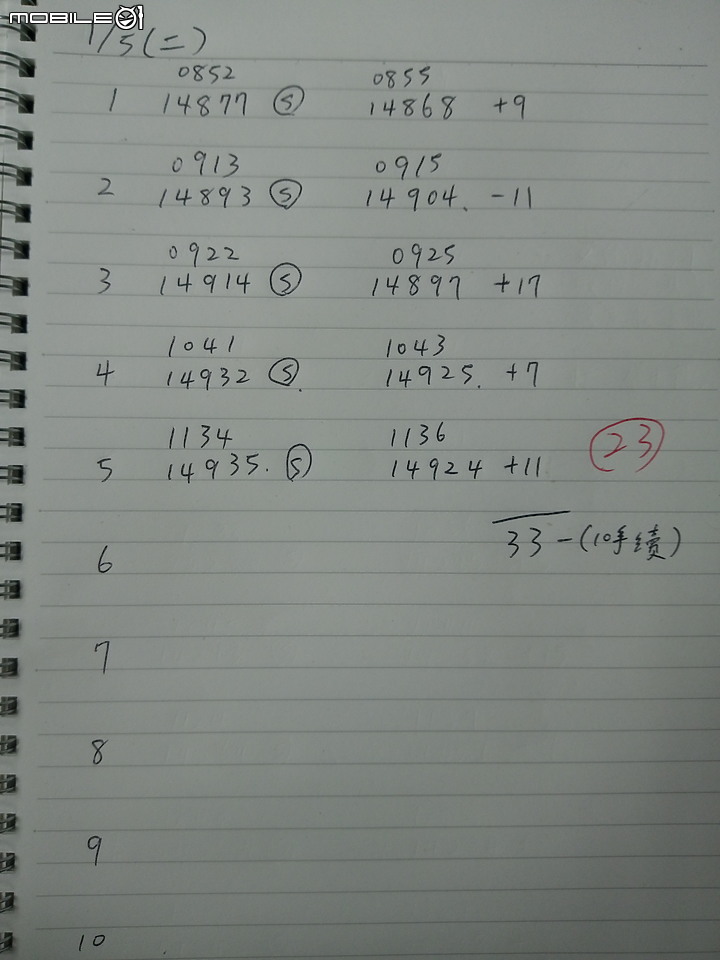 MOBILE01
1/5(二)
0852 0855
1 14877 Ⓢ 14868 +9
0913 0915
2 14893 Ⓢ 14904. -11
0922 0925
3 14914 Ⓢ 14897 +17
1041 1043
4 14932 Ⓢ. 14925. +7
1134 1136
5 14935. Ⓢ 14924 +11 23
33-(10手續)
6
7
8
9
10